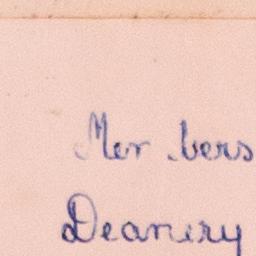 Mer bers
Deanery